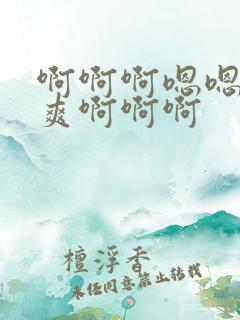 啊啊啊嗯嗯
爽啊啊啊
檀浮香
未经同意禁止转载